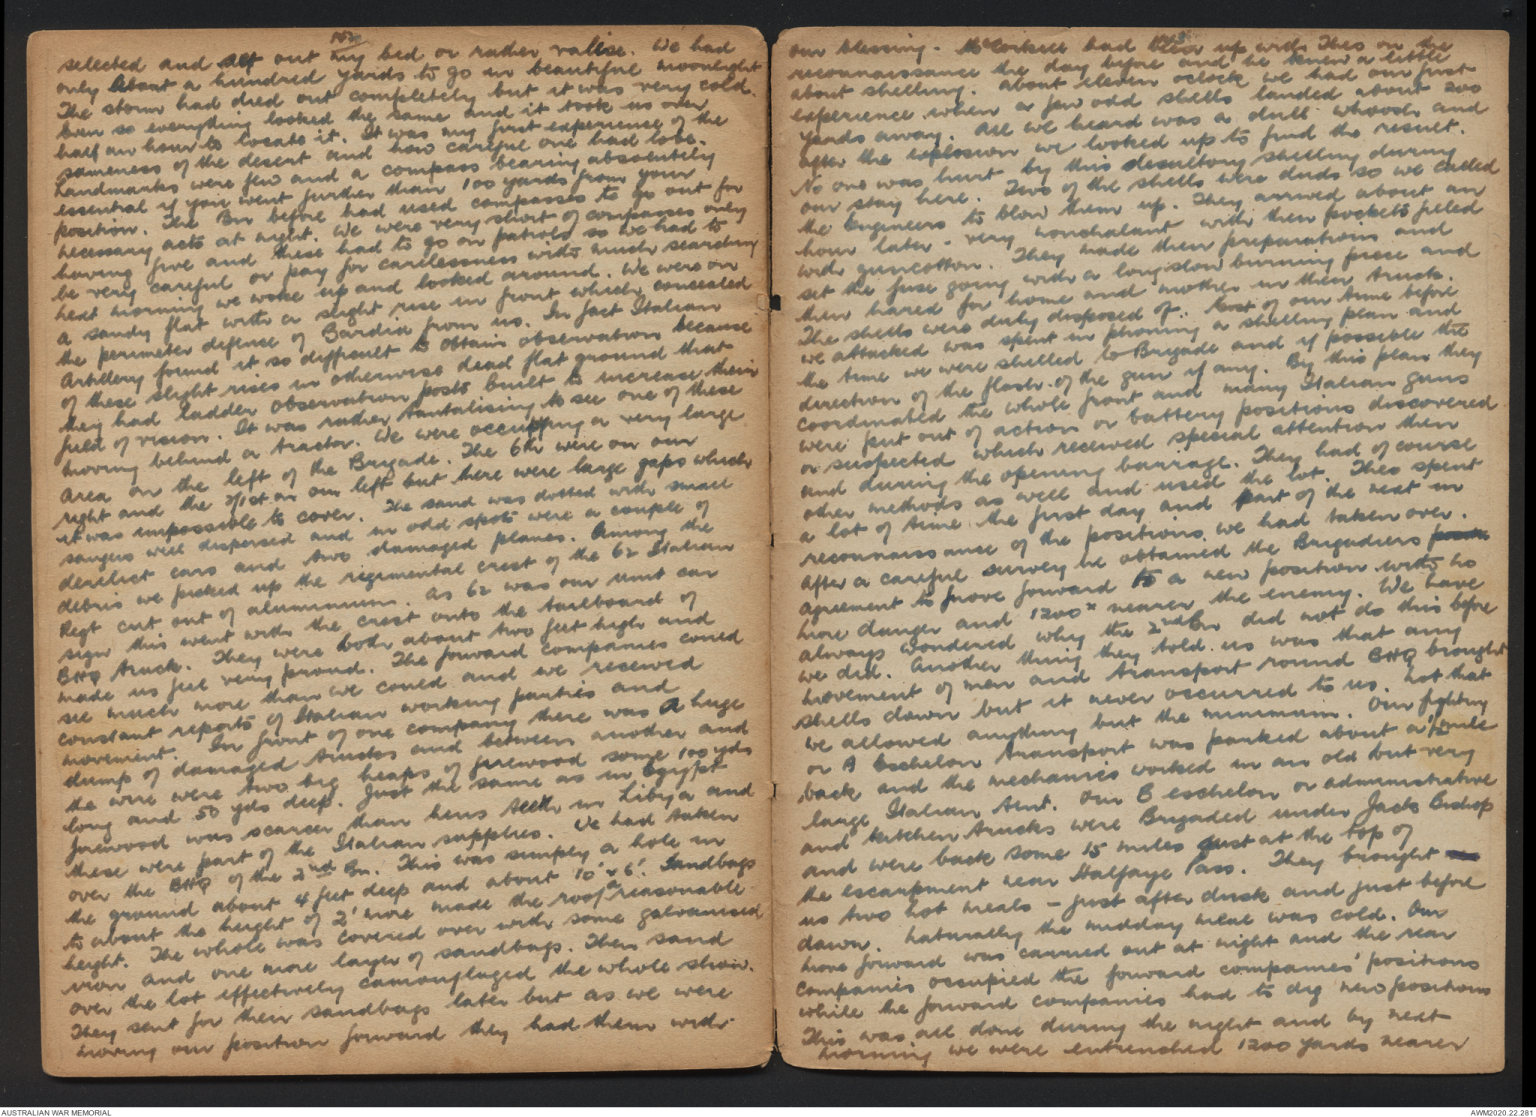 102
selected and set out my bed or rather valise. We had
only about a hundred yards to go in beautiful moonlight
The storm had died out completely but it was very cold.
Even so everything looked the same and it took us over
half an hour to locate it. It was my first experience of the
sameness of the desert and how careful one had to be.
Landmarks were few and a compass bearing absolutely
essential if you went further than 100 yards from your
position. The Bn before had used compasses to go out for
necessary acts at night. We were very short of compasses only
having five and these had to go on patrols so we had to
be very careful or pay for carelessness with much searching
next morning we woke up and looked around. We were on
a sandy flat with a slight rise in front which concealed
the perimeter defence of Bardia from us. In fact Italian
Artillery found it so difficult to obtain observation because
of these slight rises in otherwise dead flat ground that
they had ladder observation posts built to increase their
field of vision. It was rather tantalising to see one of these
moving behind a tractor. We were occupying a very large
area on the left of the Brigade. The 6th were on our
right and the 2/1st on our left but here were large gaps which
it was impossible to cover. The sand was dotted with small
sangers well dispersed and in odd spots were a couple of
derilict cars and two damaged planes. Among the
debris we picked up the regimental crest of the 62 Italian
Regt cut out of aluminium. As 62 was our unit car
sign this went with the crest onto the tailboard of
BHQ truck. They were both about two feet high and
made us feel very proud. The forward companies could
see much more than we could and we received
constant reports of Italian working parties and
movement. In front of one company there was a huge
dump of damaged trucks and between another and
the wire were two big heaps of firewood some 100 yds
long and 50 yds deep. Just the same as in Egypt
firewood was scarcer than hens teeth in Libya and
these were part of the Italian supplies. We had taken
over the BHQ of the 2nd Bn. This was simply a hole in
the ground about 4 feet deep and about 10' x 6'. Sandbags
to about the height of 2' more made the roof a reasonable
height. The whole was covered over with some galvanised
iron and one more layer of sandbags. Then sand
over the lot effectively camouflaged the whole show.
They sent for their sandbags later but as we were
moving our position forward they had them with
our blessing. McCorkell had been up with Theo on the
reconnaissance the day before and he knew a little
about shelling. About eleven oclock we had our first
experience when a few odd shells landed about 200
yards away. All we heard was a dull whoosh and
after the explosion we looked up to find the result.
No one was hurt by this desultory shelling during
our stay here. Two of the shells were duds so we called
the Engineers to blow them up. They arrived about an
hour later - very nonchalant with their pockets filled
with guncotton. They made their preparations and
set the fuse going with a long slow burning piece and
then hared for home and mother in their truck.
The shells were duly disposed of. Most of our time before
we attacked was spent in phoning a shelling plan and
the time we were shelled to Brigade and if possible the
direction of the flash of the gun if any. By this plan they
coordinated the whole front and many Italian guns
were put out of action or battery positions discovered
or suspected which received special attention then
and during the opening barrage. They had of course
other methods as well and used the lot. Theo spent
a lot of time the first day and part of the next in
reconnaissance of the positions we had taken over.
After a careful survey he obtained the Brigadiers
agreement to move forward to a new position with no
more danger and 1200x nearer the enemy. We have
always wondered why the 2nd Bn did not do this before
we did. Another thing they told us was that any
movement of men and transport round BHQ brought
shells down but it never occurred to us. Not that
we allowed anything but the minimum. Our fighting
or A Eschelon transport was parked about a 1/2 mile
back and the mechanics worked in an old but very
large Italian tent. Our B eschelon or administrative
and kitchen trucks were Brigaded under Jack Bishop
and were back some 15 miles just at the top of
the escarpment near Halfaye Pass. They brought
us two hot meals - just after dusk and just before
dawn. Naturally the midday meal was cold. Our
move forward was carried out at night and the rear
companies occupied the forward companies' positions
while the forward companies had to dig new positions
This was all done during the night and by next
morning we were entrenched 1200 yards nearer
AUSTRALIAN WAR MEMORIAL
AWM2020.22.281